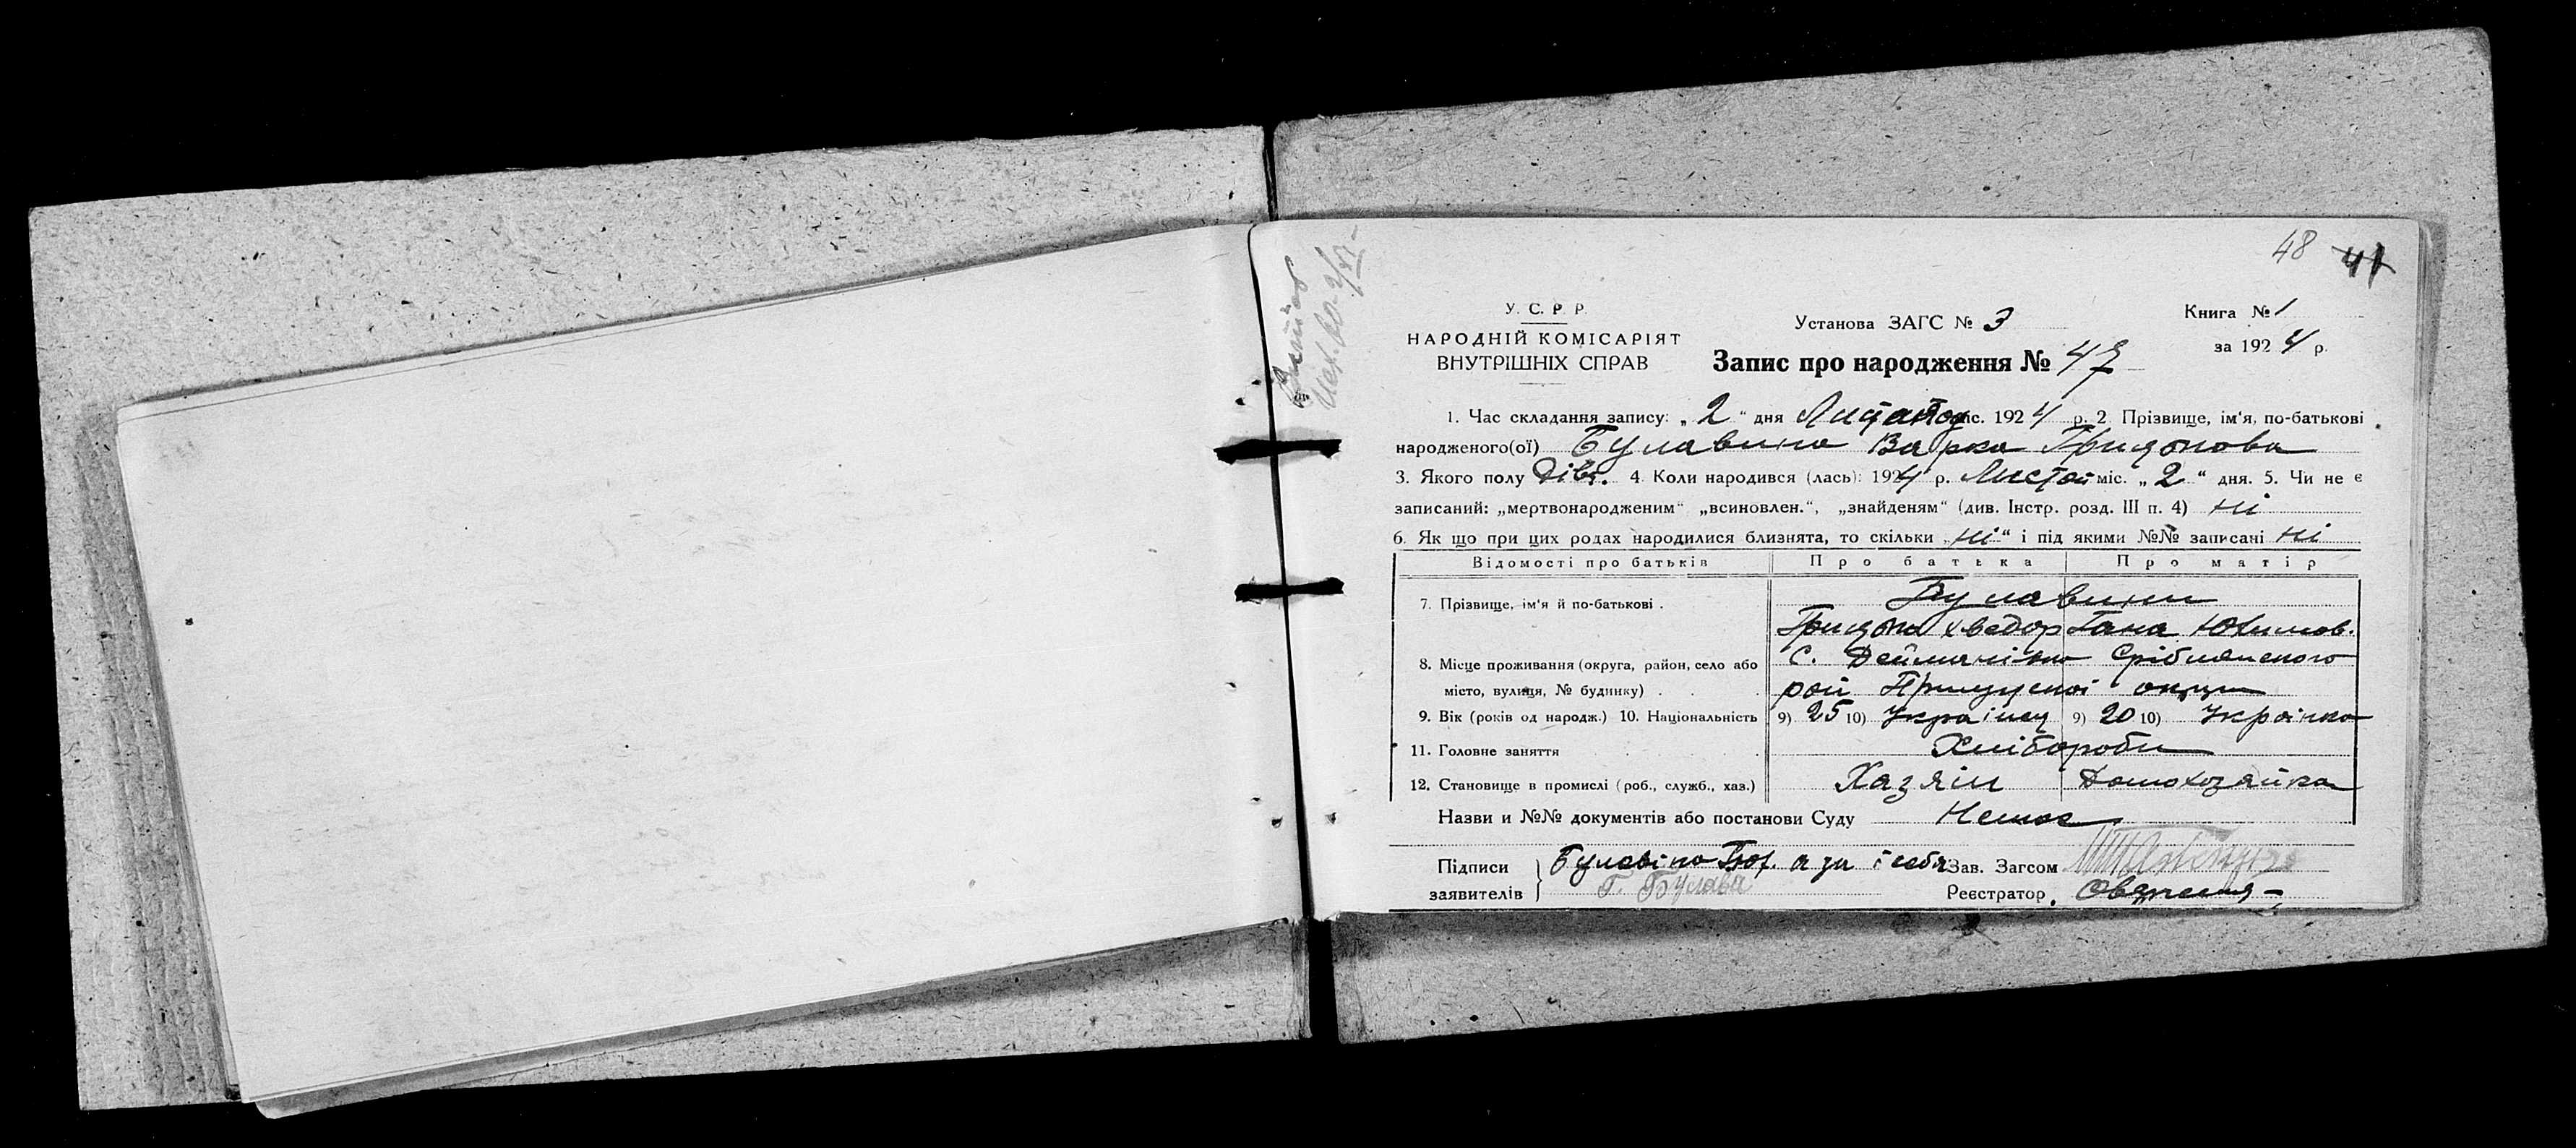 48 41
У. С. Р. Р.
НАРОДНІЙ КОМІСАРІЯТ
ВНУТРІШНІХ СПРАВ
Установа ЗАГС № 3
Книга № 1
за 1924 р.
Запис про народження № 47
1. Час складання запису: „2“ дня Листапод міс. 1924 р. 2. Прізвище, ім'я, по-батькові
народженого(ої) Булавина Варка Гридонова
3. Якого полу Дівч. 4. Коли народився (лась): 1924 р. Листоп міс. „2“ дня. 5. Чи не є
записаний: „мертвонародженим“ „всиновлен.“, „знайденям“ (див. Інстр. розд. III п. 4) Ні
6. Як що при цих родах народилися близнята, то скільки „Ні“ і під якими №№ записані Ні
Відомості про батьків Про батька Про матір
7. Прізвище, ім'я й по-батькові . Булавини
Хведор Гана Юхимов.
8. Місце проживання (округа, район, село або С. Дейманівка Срібнянского
місто, вулиця, № будинку) . рай Прилуцкої округи
9. Вік (років од народж.) 10. Національність 9) 25 10) Українец 9) 20 10) Українка
11. Головне заняття Хлібороби
12. Становище в промислі (роб., служб., хаз.) Хазяїн Домохозяйка
Назви и №№ документів або постанови Суду Немає
Підписи Булавіна а за і себя Зав. Загсом
заявителів Г. Булава Реєстратор